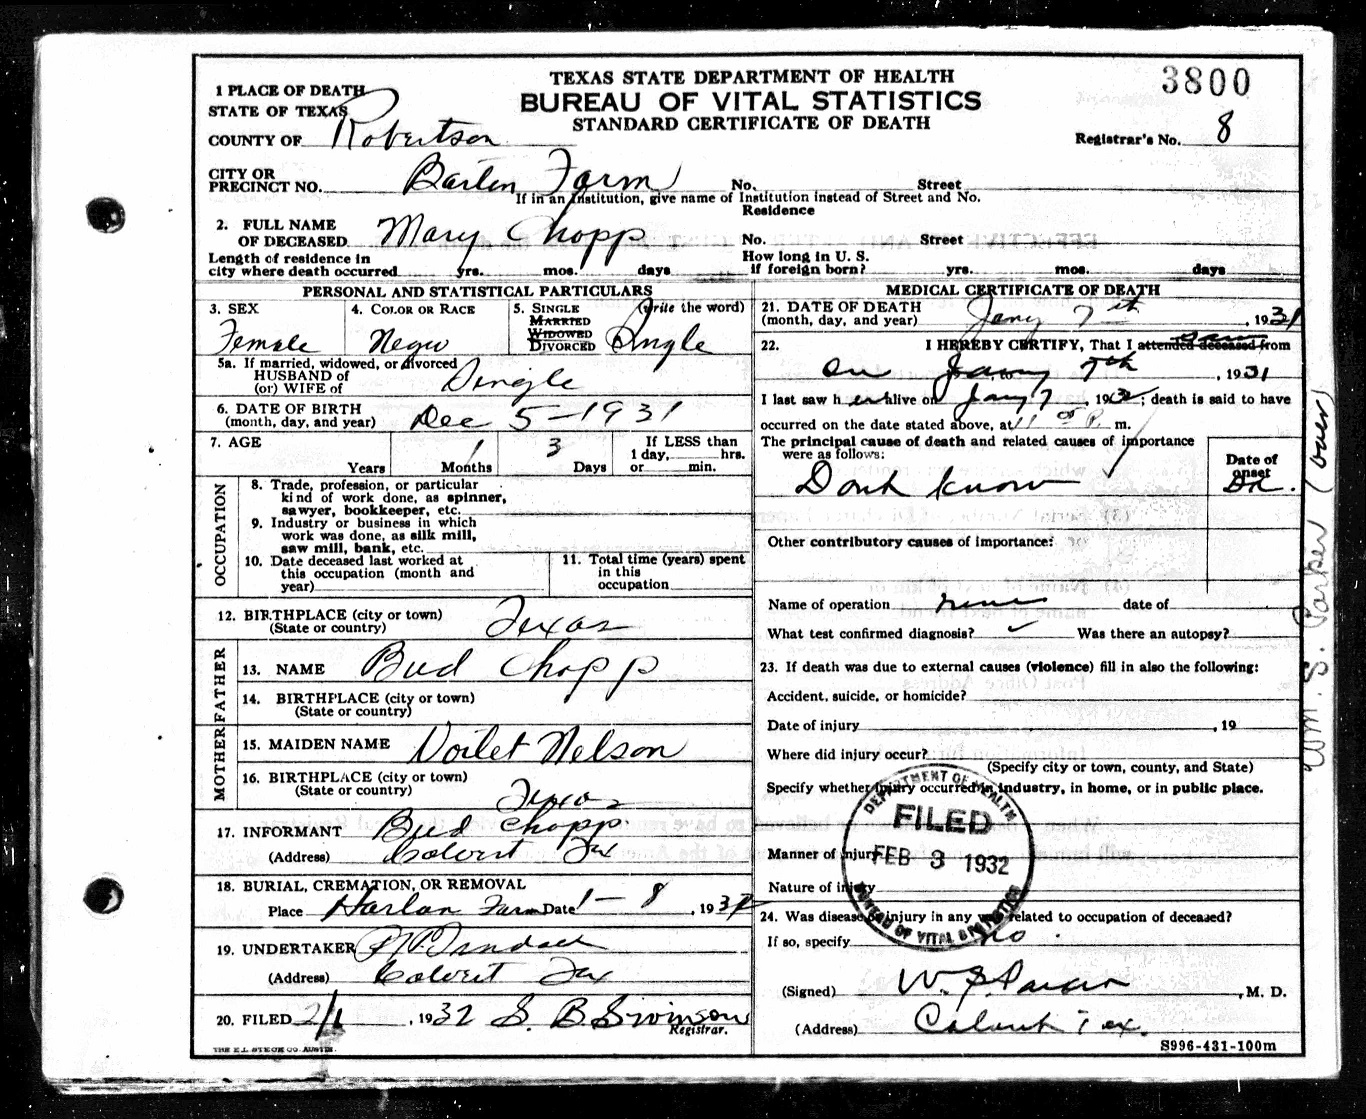 TEXAS STATE DEPARTMENT OF HEALTH
BUREAU OF VITAL STATISTICS
STANDARD CERTIFICATE OF DEATH
3800
Registrar's No. 8
1 PLACE OF DEATH
STATE OF TEXAS
COUNTY OF Robertson
CITY OR
PRECINCT NO. Farm No. Street
If in an Institution, give name of Institution instead of Street and No.
Residence
2. FULL NAME
OF DECEASED Mary Chopp No. Street
Length of residence in
city where death occurred yrs. mos. days
How long in U. S.
if foreign born? yrs. mos. days
PERSONAL AND STATISTICAL PARTICULARS
3. SEX
Female
4. COLOR OR RACE
Negro
5. SINGLE (Write the word)
MARRIED
WIDOWED
DIVORCED
Single
5a. If married, widowed, or divorced
HUSBAND of
(or) WIFE of Single
6. DATE OF BIRTH
(month, day, and year) Dec 5-1931
7. AGE
Years
1 Months
3 Days
If LESS than
1 day, hrs.
or min.
OCCUPATION
8. Trade, profession, or particular
kind of work done, as spinner,
sawyer, bookkeeper, etc.
9. Industry or business in which
work was done, as silk mill,
saw mill, bank, etc.
10. Date deceased last worked at
this occupation (month and
year)
11. Total time (years) spent
in this
occupation
12. BIRTHPLACE (city or town)
(State or country) Texas
FATHER
13. NAME Bud Chopp
14. BIRTHPLACE (city or town)
(State or country)
MOTHER
15. MAIDEN NAME Voilet Nelson
16. BIRTHPLACE (city or town)
(State or country) Texas
17. INFORMANT Bud Chopp
(Address) Calvert Tex
18. BURIAL, CREMATION, OR REMOVAL
Place Harlan Farm Date 1-8, 1932
19. UNDERTAKER
(Address) Calvert Tex
20. FILED 2/1, 1932 S. B. Swinson
Registrar.
THE E.L. STECK CO. AUSTIN.
MEDICAL CERTIFICATE OF DEATH
21. DATE OF DEATH
(month, day, and year) Jany 7th, 1931
22. I HEREBY CERTIFY, That I attended deceased from
saw
on Jany 7th, 1931
I last saw her alive on Jany 7, 193; death is said to have
occurred on the date stated above, at 11 P. m.
The principal cause of death and related causes of importance
were as follows:
Date of
onset
Dont know DK.
Other contributory causes of importance:
Name of operation none date of
What test confirmed diagnosis? Was there an autopsy?
23. If death was due to external causes (violence) fill in also the following:
Accident, suicide, or homicide?
Date of injury, 19
Where did injury occur?
(Specify city or town, county, and State)
Specify whether injury occurred in industry, in home, or in public place.
Manner of injury
Nature of injury
24. Was disease or injury in any way related to occupation of deceased?
If so, specify no.
(Signed) W. S. Parker, M. D.
(Address) Calvert Tex.
S996-431-100m
DEPARTMENT OF HEALTH
FILED
FEB 3 1932
BUREAU OF VITAL STATISTICS
Wm. S. Parker (over)